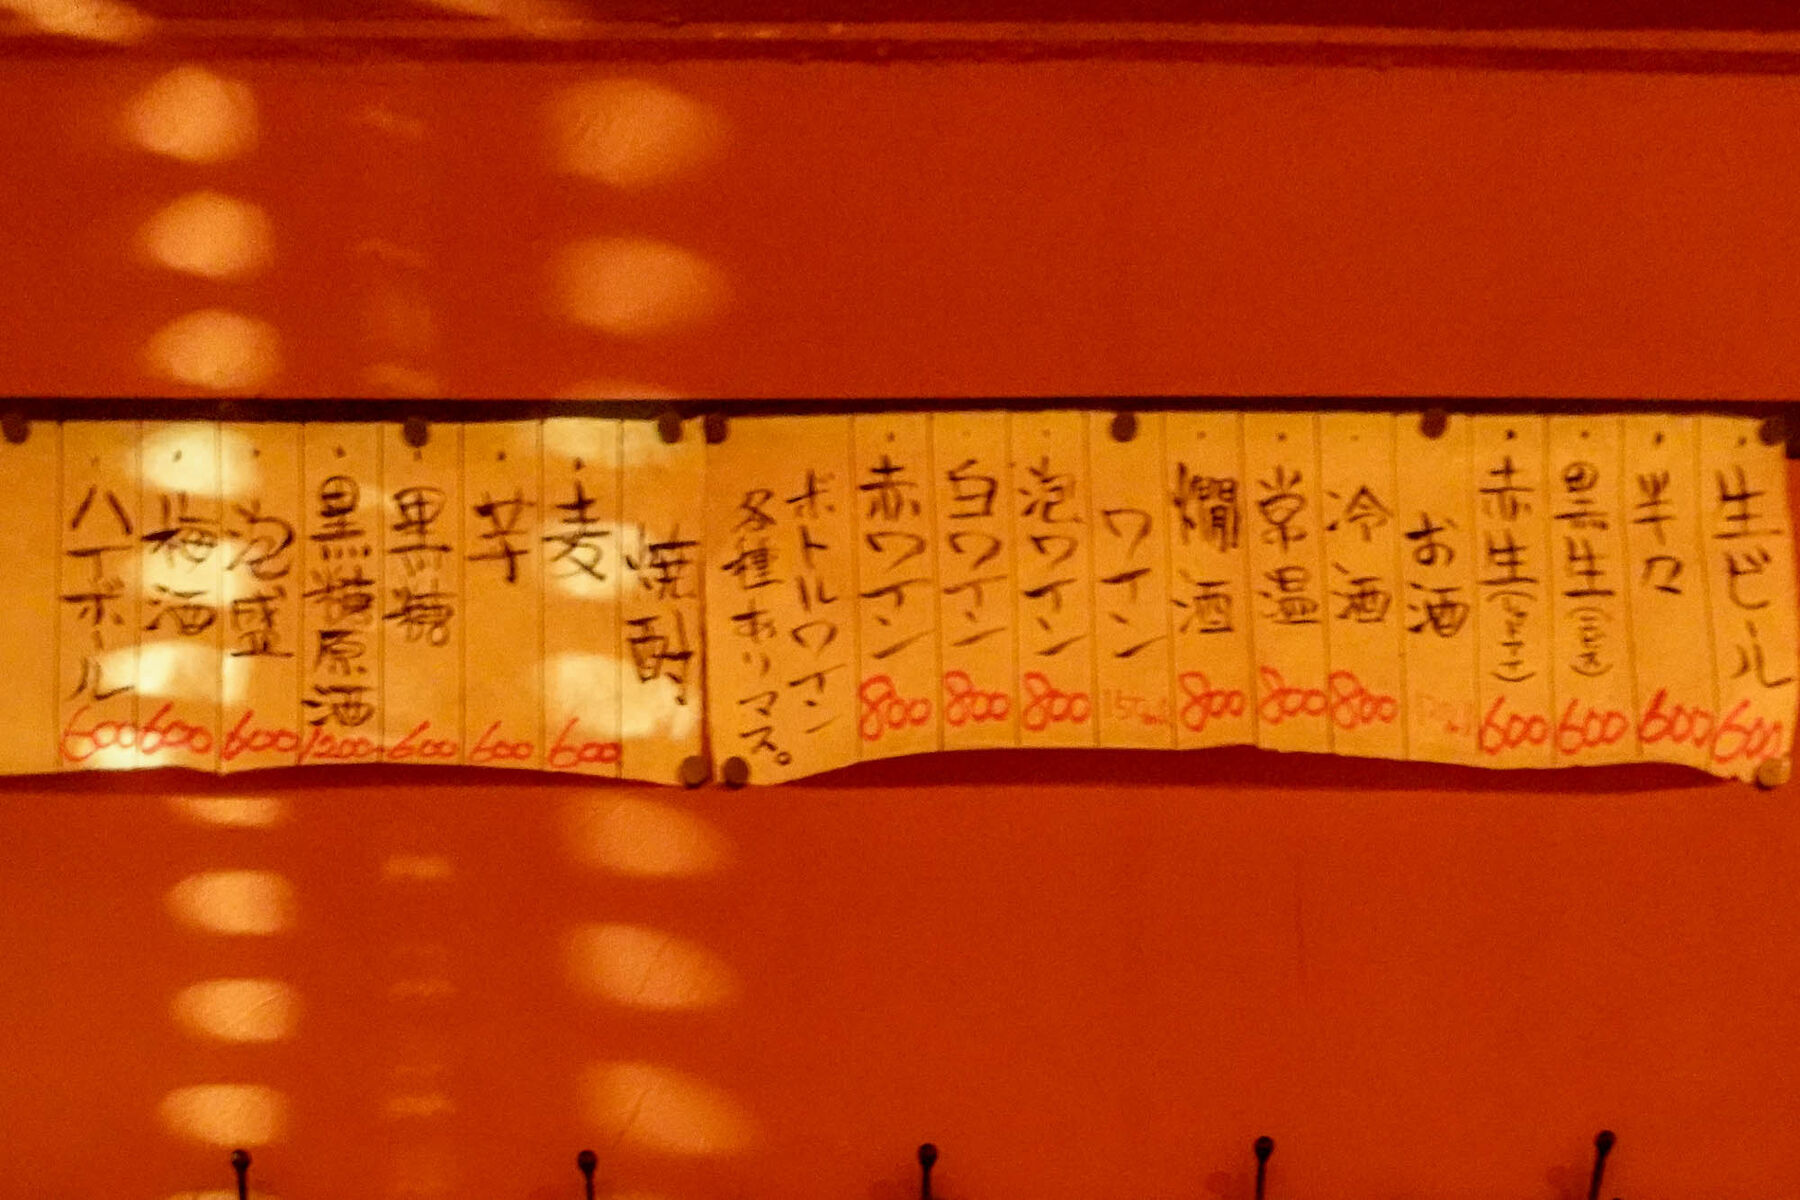 生ビール 600
半々 600
黒生(小びん) 600
赤生(トマト) 600
お酒
冷酒 800
常温 800
燗酒 800
ワイン 150ml
泡ワイン 800
白ワイン 800
赤ワイン 800
ボトルワイン
各種ありマス。
焼酎
麦 600
芋 600
黒糖 600
黒糖原酒 1200
泡盛 600
梅酒 600
ハイボール 600